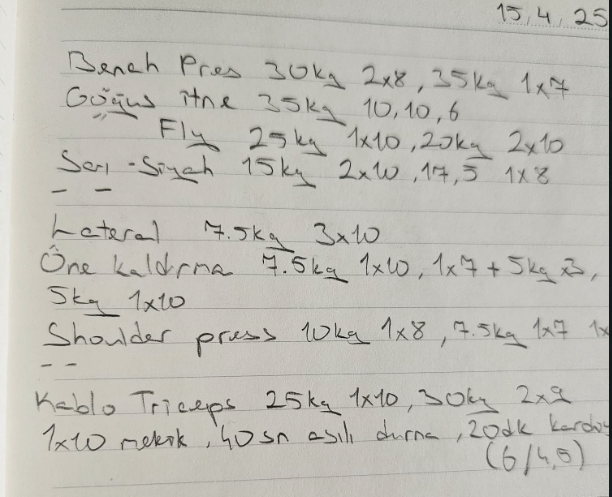 15,4,25
Bench Pres 30kg 2x8, 35kg 1x7
Göğüs itne 35kg 10,10,6
Fly 25kg 1x10, 20kg 2x10
Sarı-Siyah 15kg 2x10, 17,5 1x8
Lateral 7.5kg 3x10
Öne kaldırma 7.5kg 1x10, 1x7 + 5kg x3,
5kg 1x10
Shoulder press 10kg 1x8, 7.5kg 1x7 1x
Kablo Triceps 25kg 1x10, 30kg 2x9
1x10 mekik, 40sn asılı durma, 20dk kardiyo
(6/4,0)